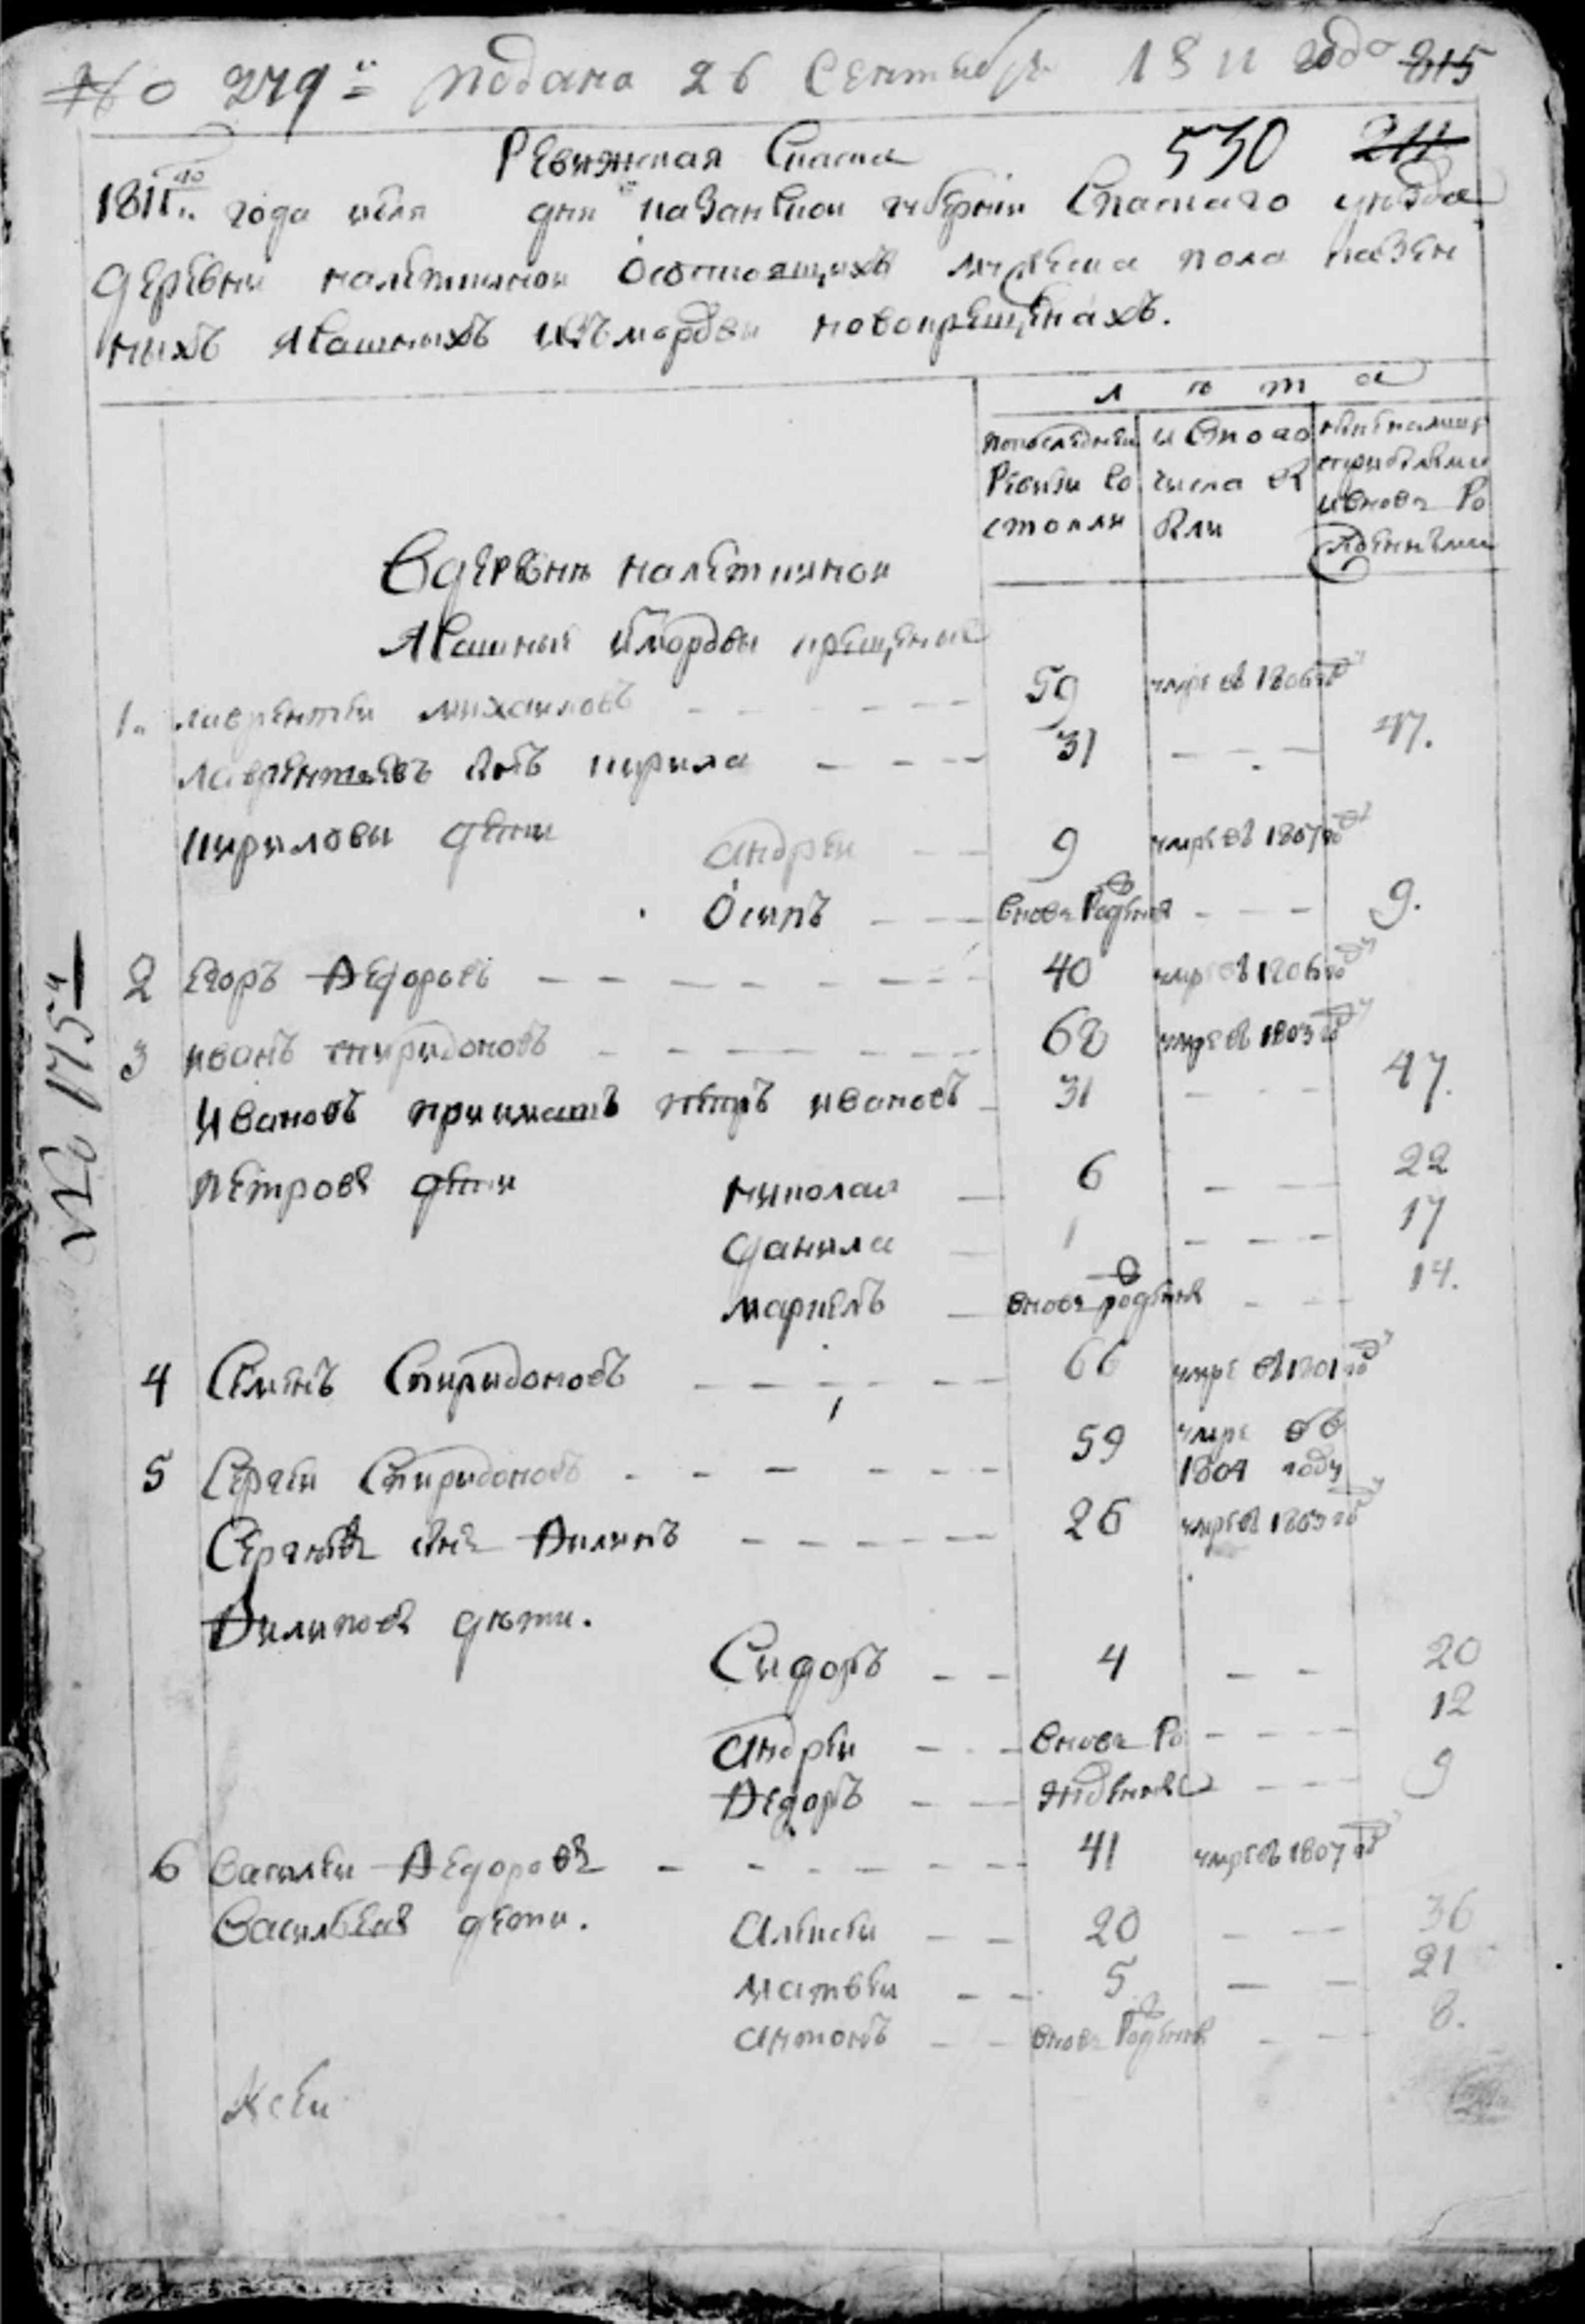 No 279й подана 26 Сентября 1811 года 215
Ревижская Сказка 530 211
1811го года июля дня казанской губернии Спаскаго уезда
деревни налеткиной Осостоящихъ мужеска пола казен
ныхъ яСашныхъ изъ мордвы новокрещенахъ.
л ѣ т а
попоследней Ревизи Со стояли
и Стого числа выбыли
ныне налицо сприбылыми ивновь Рожденными
Вдеревнѣ налеткиной
яСашныя измордвы крещеные
1. лаврентей михаиловъ 59 умре въ 1806 году
лаврентьевъ Сынъ кирила 31 47.
кириловы дети андреи 9 умре въ 1807 году
Осипъ вновь Рожденъ 9.
2 егоръ Ѳедоровъ 40 умре въ 1806 году
3 иванъ спиридоновъ 62 умре въ 1803 году
Ивановъ приимышъ петръ ивановъ 31 47.
петровы дети николаи 6 22
данила 1 17
маркелъ вновь рожденъ 14.
4 Семенъ Спиридоновъ 66 умре въ 1801 году
5 Сергеи Спиридоновъ 59 умре въ 1804 году
Сергеевъ Сынъ Ѳилипъ 26 умре въ 1803 году
Ѳилиповы дѣти.
Сидоръ 4 20
андреи вновь Ро 12
Ѳедоръ жденные 9
6 Василеи Ѳедоровъ 41 умре въ 1807 году
Васильевы дети. Алексеи 20 36
матвеи 5 21
антонъ вновь Рожденъ 8.
No 175й